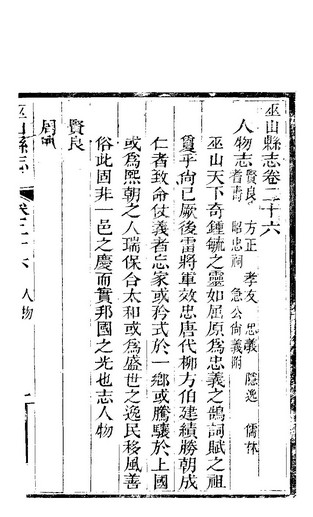 巫山縣志卷二十六
人物志 賢良 方正 孝友 忠義 隱逸 儒林
耆壽 昭忠祠 急公尚義附
巫山天下奇鍾毓之靈如屈原為忠義之鵠詞賦之祖
敻乎尚已厥後雷將軍效忠唐代柳方伯建績勝朝成
仁者致命仗義者忘家或矜式於一鄉或騰驤於上國
或為熙朝之人瑞保合太和或為盛世之逸民移風善
俗此固非一邑之慶而實邦國之光也志人物
賢良
周
巫山縣志
卷二十六
人物
一